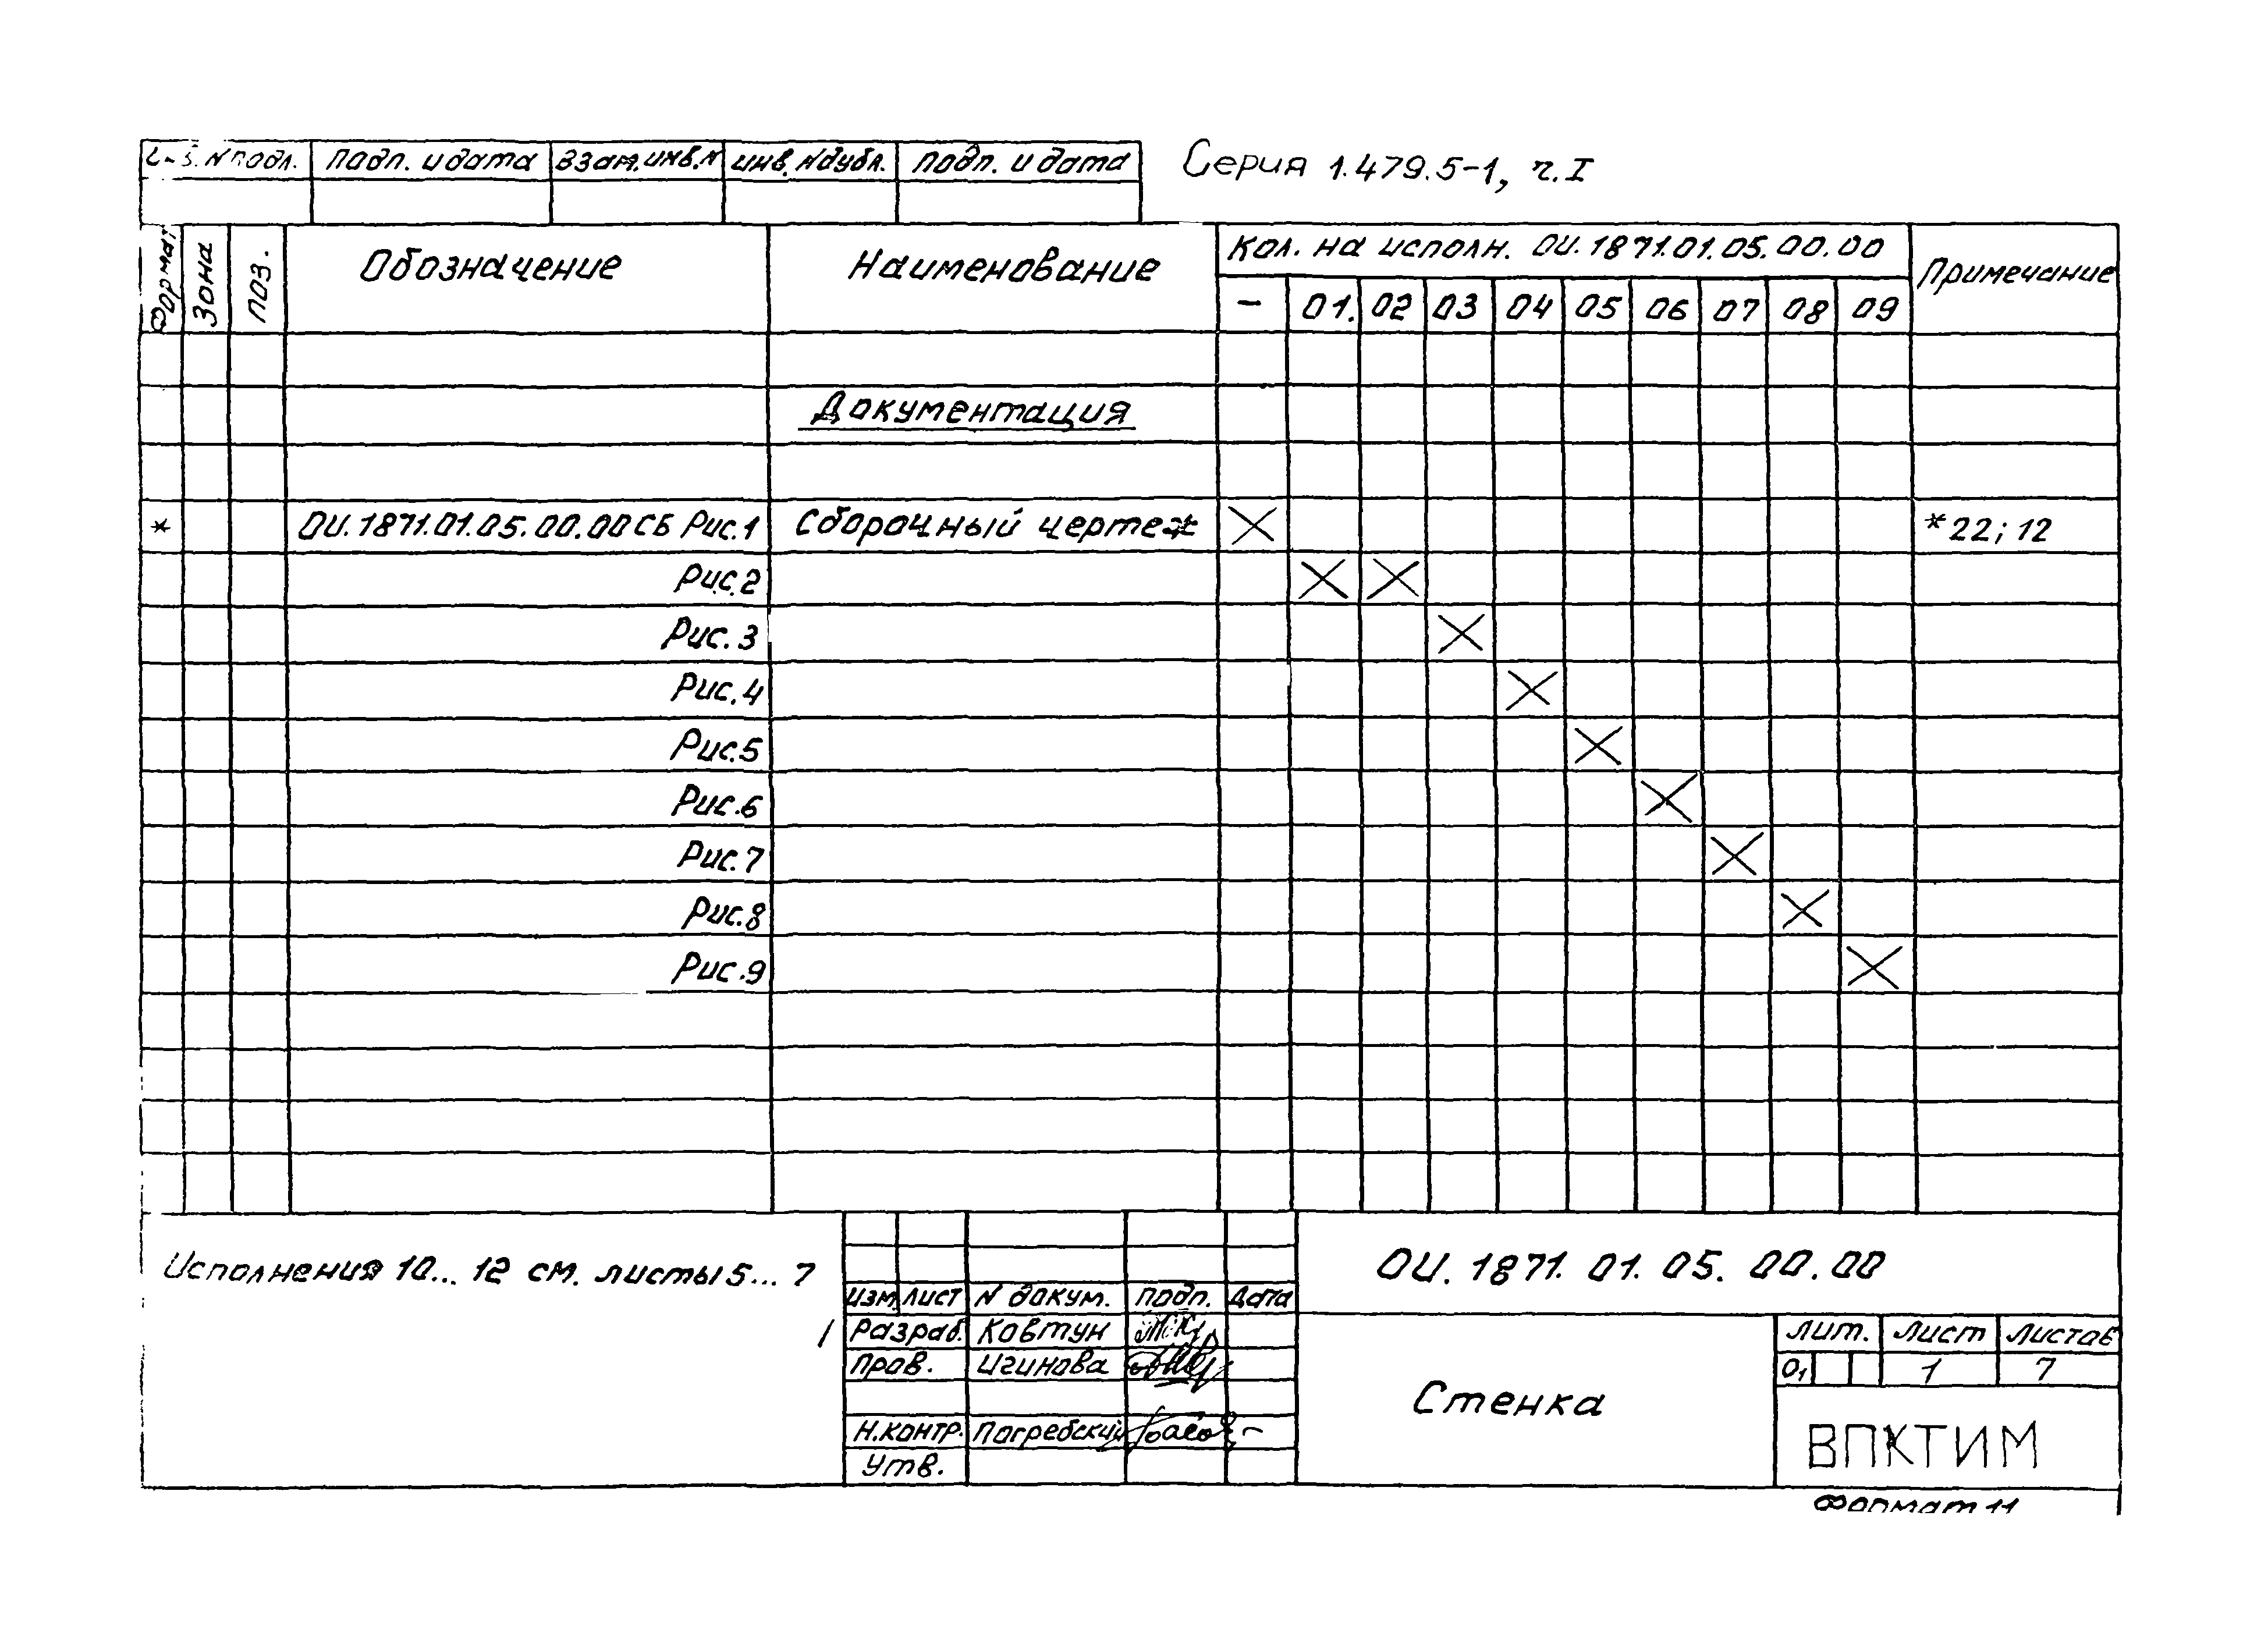 N подл. Подп. и дата Взам. инв. N Инв. N дубл. Подп. и дата
Серия 1.479.5-1, ч. I
Формат Зона Поз. Обозначение Наименование Кол. на исполн. ОИ.1871.01.05.00.00 Примечание
- 01. 02 03 04 05 06 07 08 09
Документация
* ОИ.1871.01.05.00.00 СБ Рис.1 Сборочный чертеж X *22; 12
Рис.2 X X
Рис.3 X
Рис.4 X
Рис.5 X
Рис.6 X
Рис.7 X
Рис.8 X
Рис.9 X
Исполнения 10... 12 см. листы 5... 7
ОИ. 1871. 01. 05. 00. 00
Изм Лист N докум. Подп. Дата
Разраб. Ковтун
Пров. Игинова
Н.контр. Погребский
Утв.
Стенка
Лит. Лист Листов
О1 1 7
ВПКТИМ
Формат 11